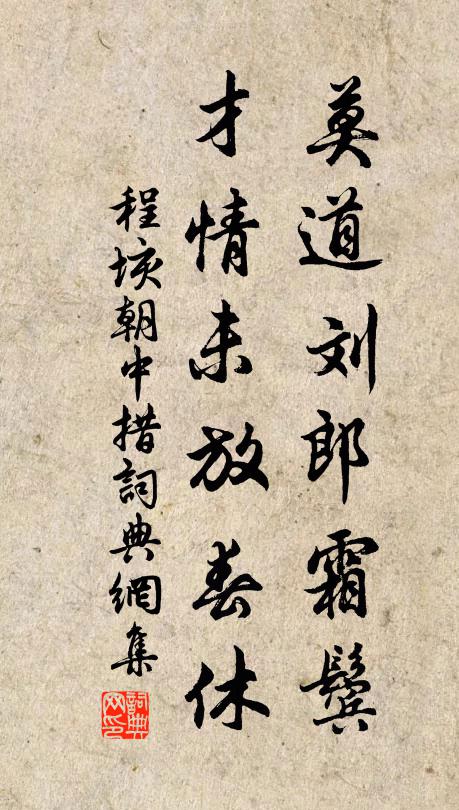 莫道刘郎霜鬓
才情未放春休
程垓朝中措詞典網集
詞典网印